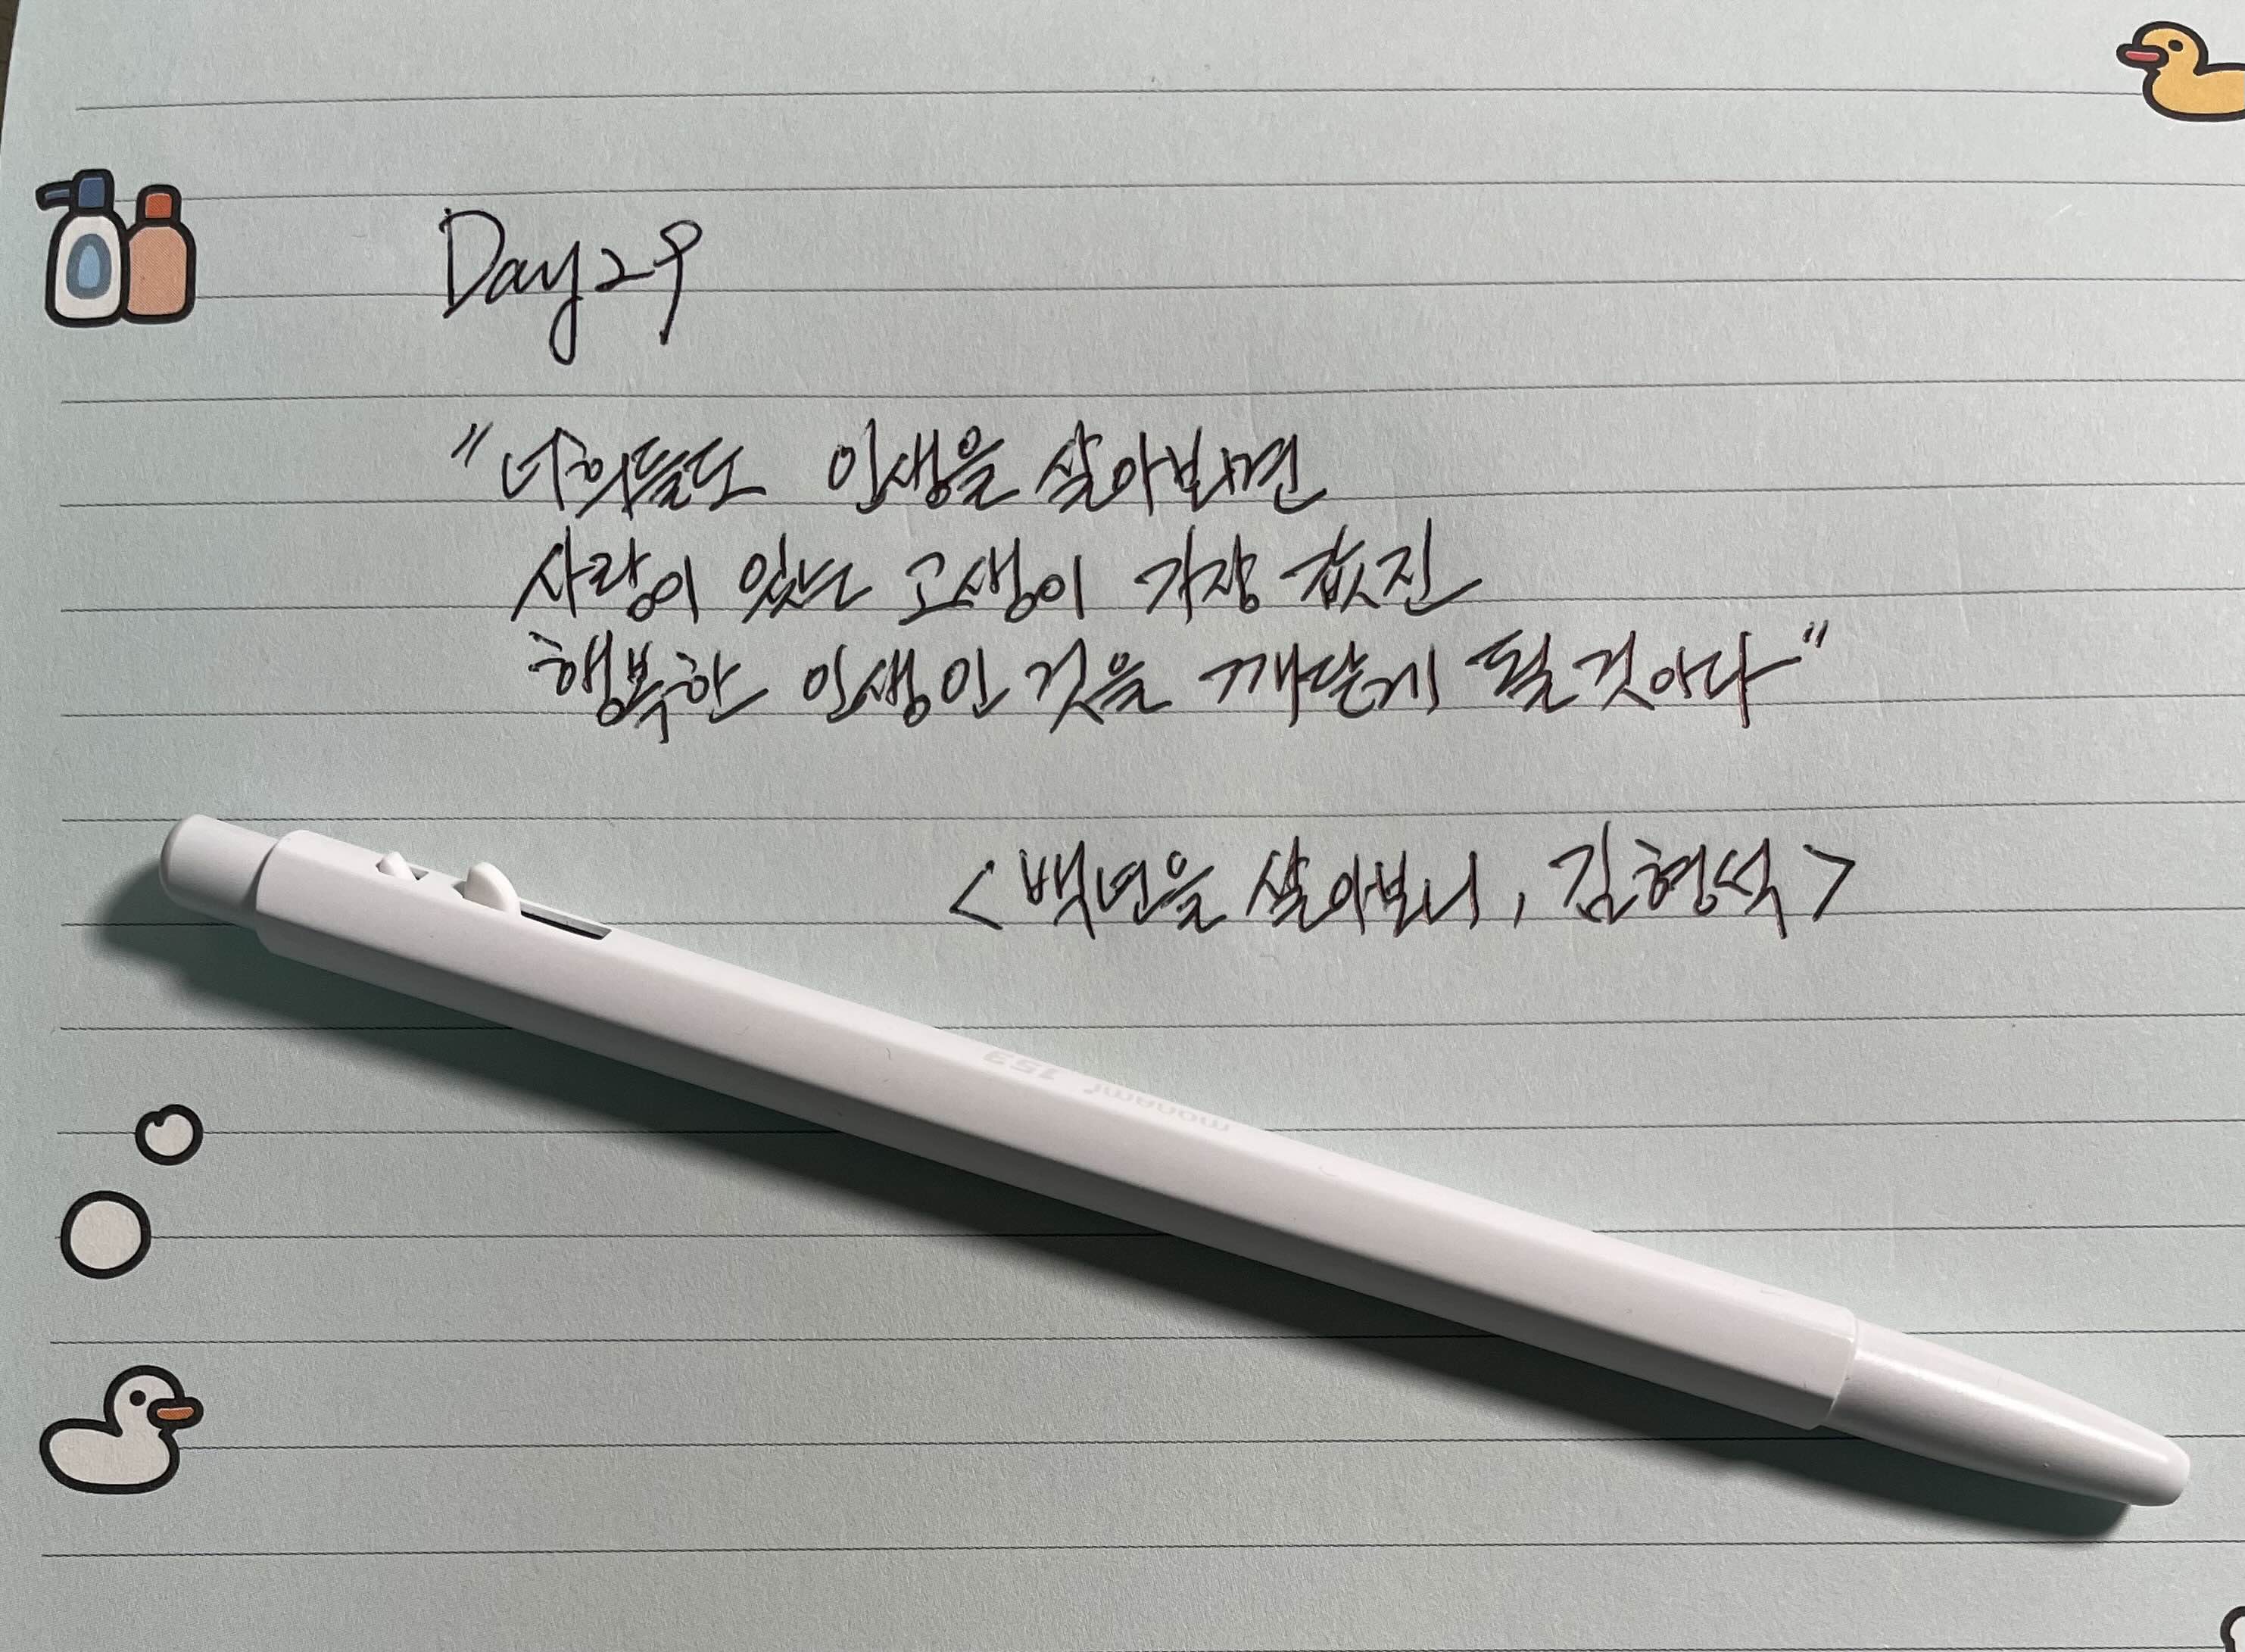 Day 29
"너희들도 인생을 살아보면
사랑이 있는 고생이 가장 값진
행복한 인생인 것을 깨닫게 될 것이다"
<백년을 살아보니, 김형석>
monami 153